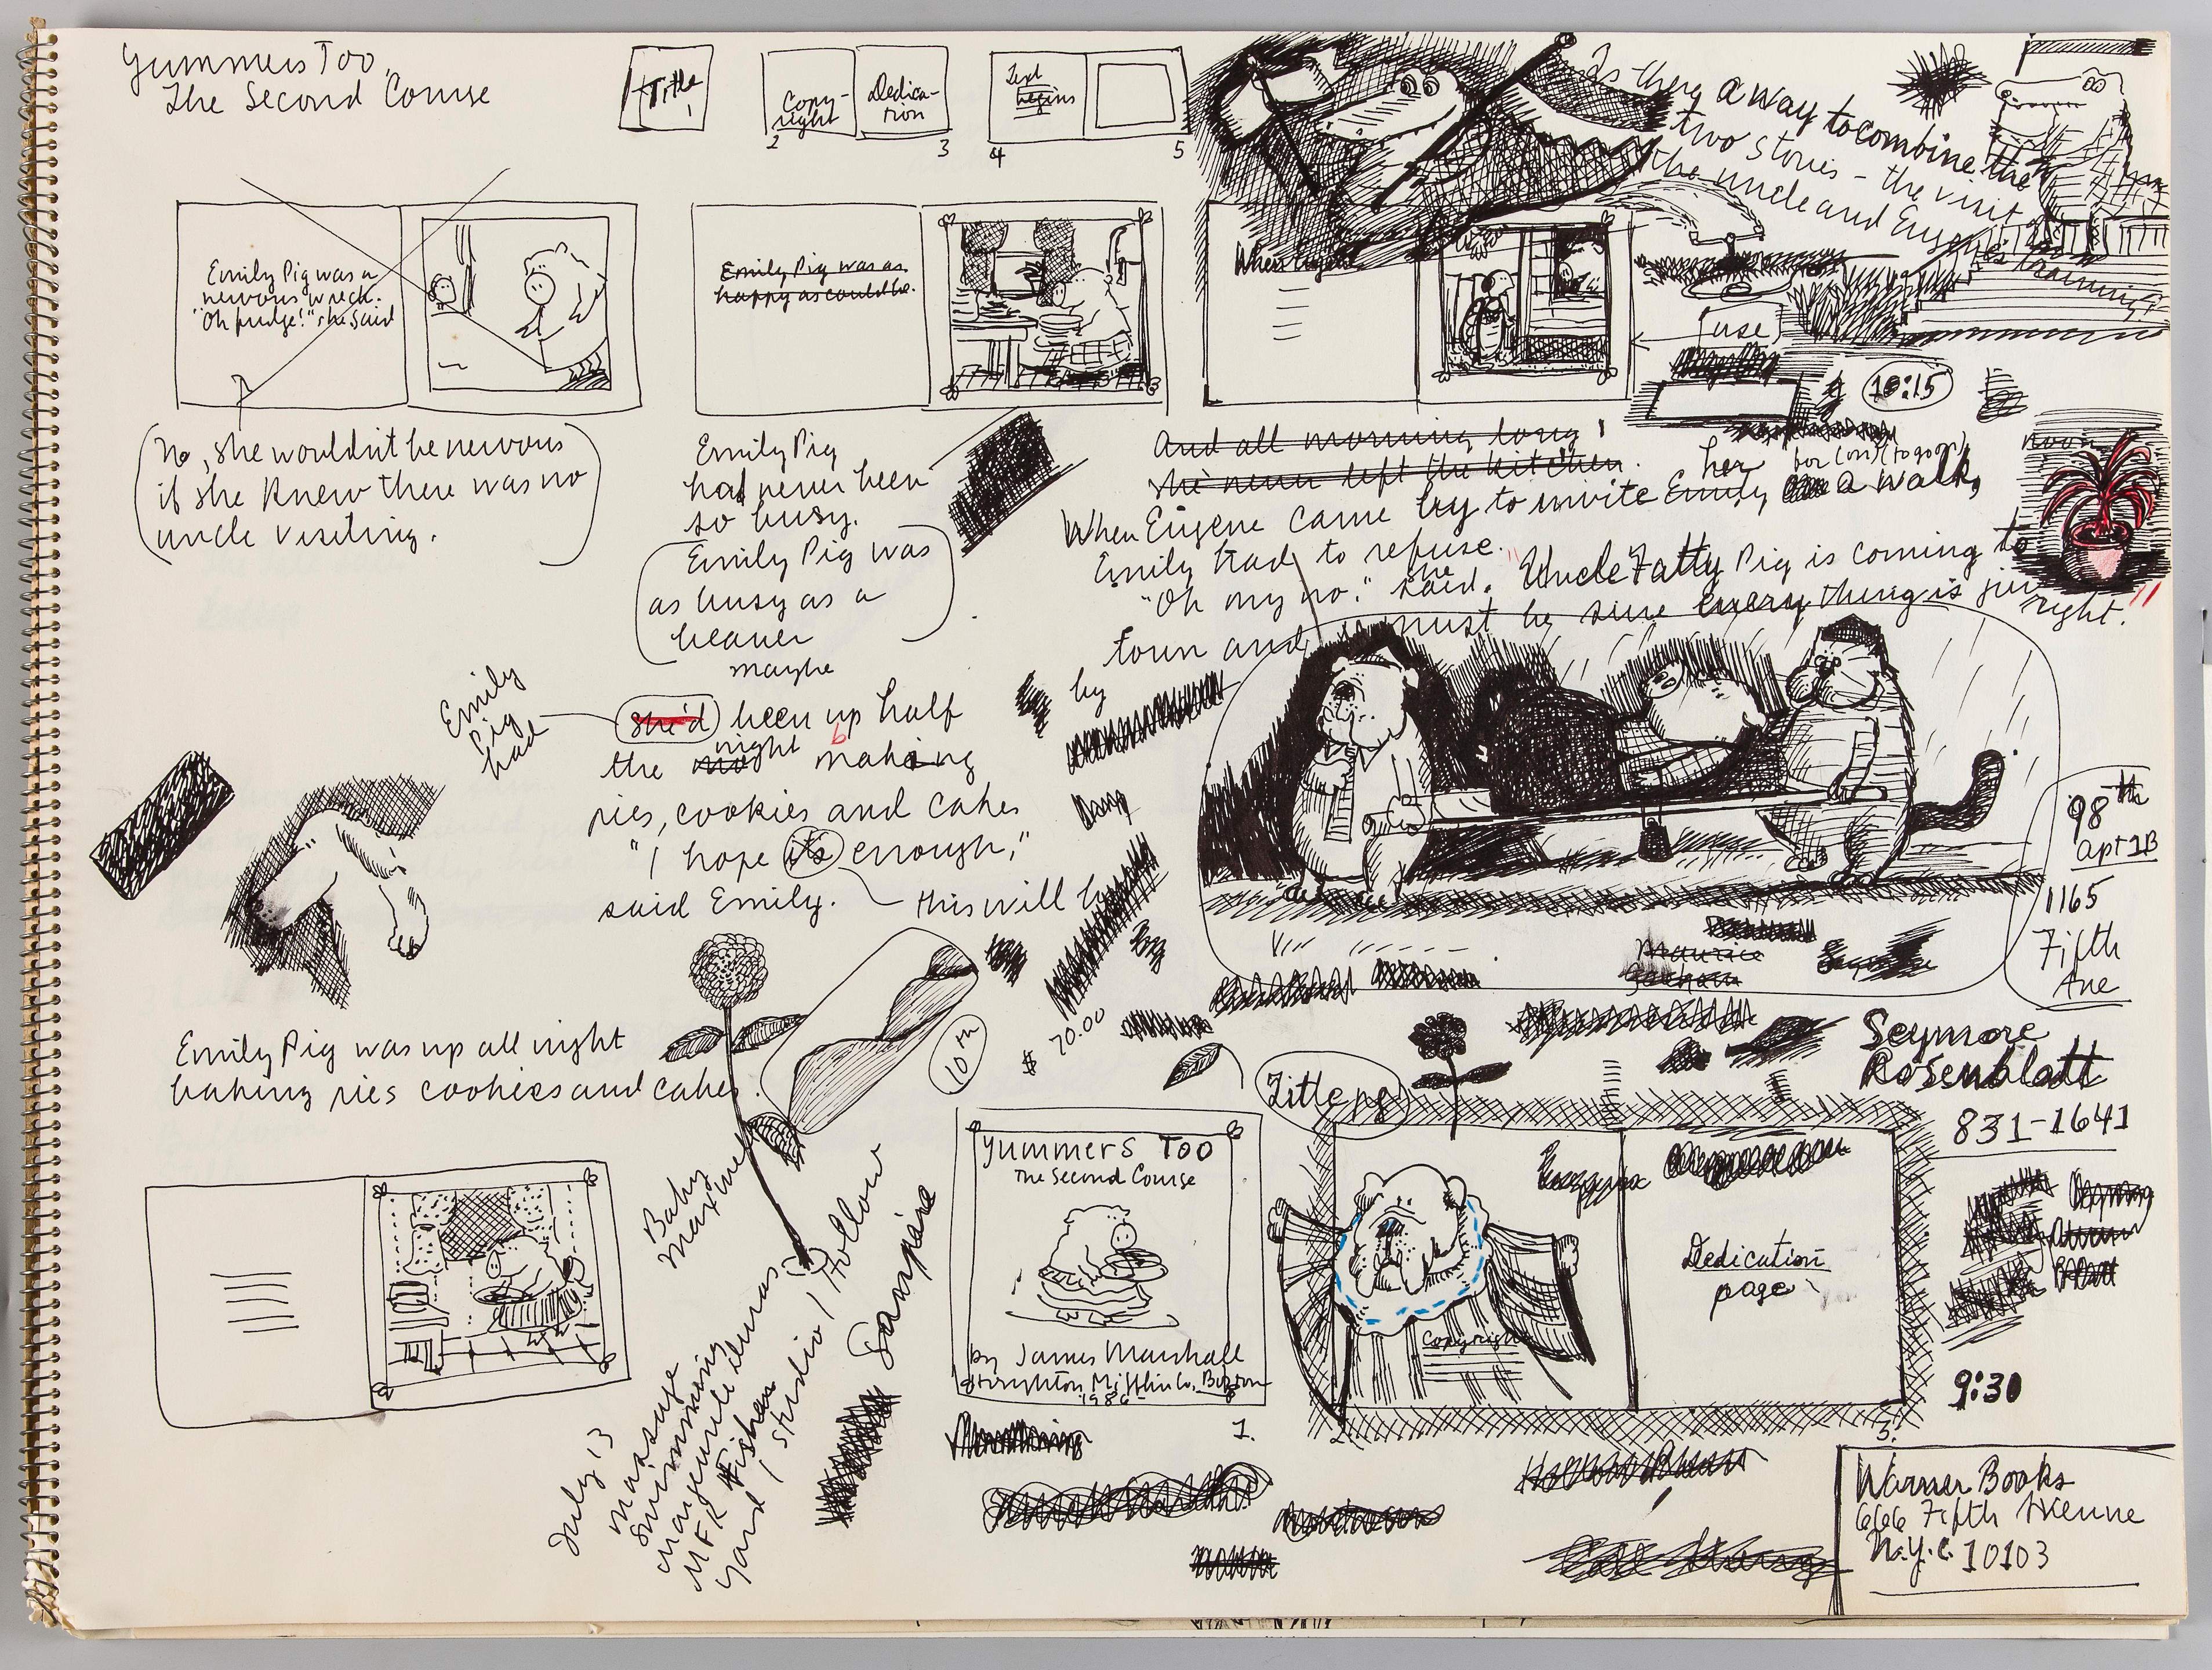 Yummers Too,
The Second Course
Title
1
Copy-
right
2
Dedica-
tion
3
Text
begins
4
5
Is there a way to combine the
two stories - the visit
the uncle and Eugene's training?
Emily Pig was a
nervous wreck.
"Oh pudge!" she said
Emily Pig was as
happy as could be.
When Eugene
(use)
10:15
noon
(No, she wouldn't be nervous
if she knew there was no
uncle visiting.)
Emily Pig
had never been
so busy.
(Emily Pig was
as busy as a
beaver
maybe
And all morning long
she never left the kitchen.
her
for (on) (to go on)
When Eugene came by to invite Emily a walk,
Emily had to refuse.
"Oh my no." she said. "Uncle Fatty Pig is coming to
town and must be sure everything is just
right."
by
Emily
Pig
had
she'd been up half
the night making
b
pies, cookies and cakes
"I hope it's enough,"
said Emily.
this will be
98th
apt 1B
1165
Fifth
Ave
Maurice
Seymore
Rosenblatt
831-1641
$ 70.00
10th
Emily Pig was up all night
baking pies cookies and cakes.
Baby
Maxwell
July 13
massage
swimming
marguerite
MFK Fisher
yard / studio / Hollow
Sampire
Yummers Too
The Second Course
by James Marshall
Houghton Mifflin Co., Boston
1986
1.
Title pg
Copyright
2.
Dedication
page
3.
9:30
Warner Books
666 Fifth Avenue
N.Y.C. 10103